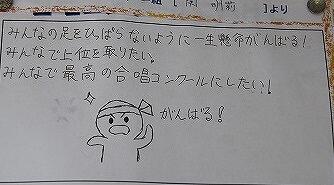 みんなの足をひっぱらないように一生懸命がんばる!
みんなで上位を取りたい。
みんなで最高の合唱コンクールにしたい!
がんばる!